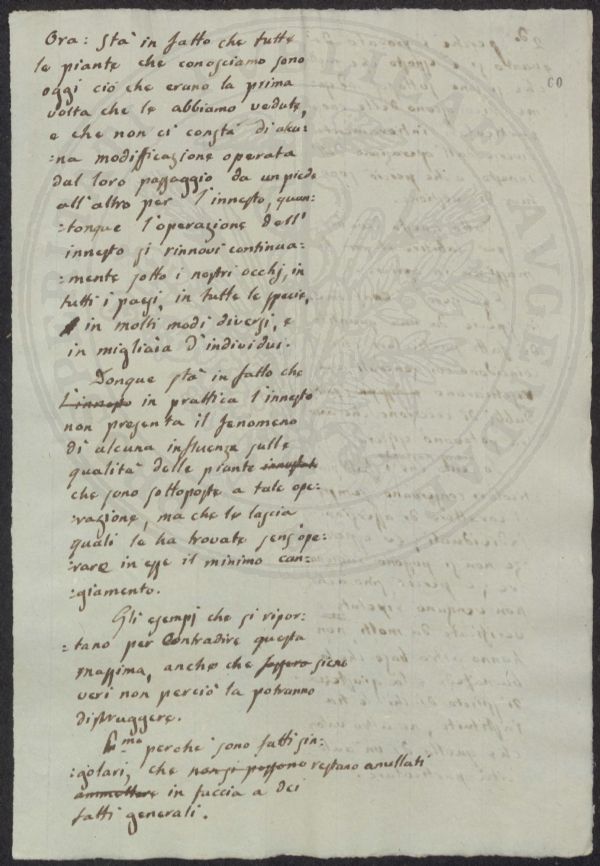 Ora: stà in fatto che tutte
le piante che conosciamo sono
oggi ciò che erano la prima
volta che le abbiamo vedute,
e che non ci constà di alcu:
:na modifficazione operata
dal loro passaggio da un piede
all'altro per l'innesto, quan:
:tonque l'operazione dell'
innesto si rinnovi continua:
:mente sotto i nostri occhj, in
tutti i paesi, in tutte le specie,
in molti modi diversi, e
in migliaia d'individui.
Donque stà in fatto che
l'innesto in prattica l'innesto
non presenta il fenomeno
di alcuna influenza sulle
qualità delle piante
che sono sottoposte a tale ope:
:razione, ma che le lascia
quali le ha trovate sens'ope:
:rare in esse il minimo can:
:giamento.
Gli esempj che si ripor:
:tano per contradire questa
massima, anche che fossero siene
veri non perciò la potranno
distruggere.
P.mo perché sono fatti sin:
:golari, che non si possono restano anullati
ammettere in faccia a dei
fatti generali.
60